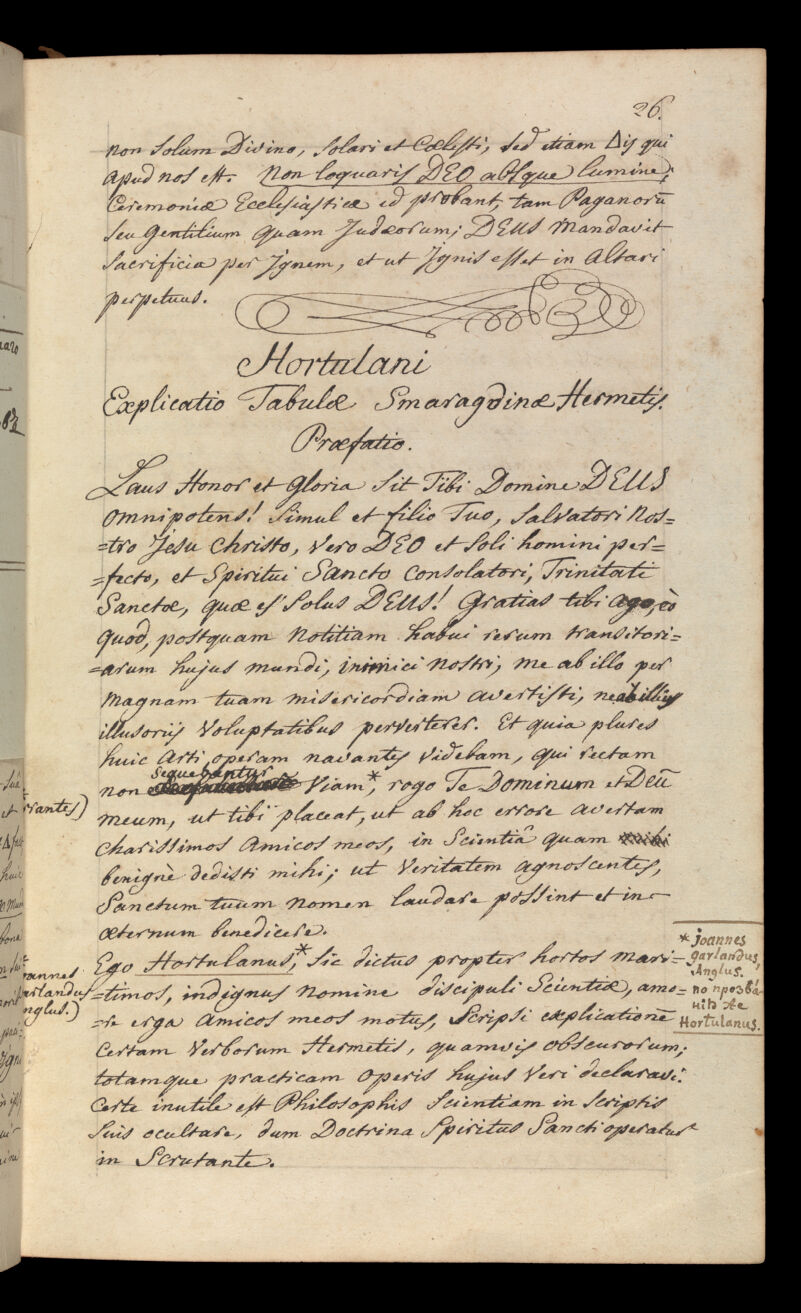 26.
non solum Divino, solari et Cœlesti, sed etiam Δis qui
apud nos est. Non loquaris DEO absque lumine;
Ceremoniæ Ecclesiasticæ id probant, tam Paganorū
seu Gentilium quam Judæorum; DEUS mandavit
sacrificia per Ignem, et ut Ignis esset in Altari
perpetuus.
Hortulani
Explicatio Tabulæ Smaragdinæ Hermetis.
Præfatio.
Laus Honor et Gloria sit Tibi Domine DEUS
omnipotens! simul et filio Tuo, salvatori nos=
=tro Jesu Christo, vero DEO et soli homini per=
=fecto, et Spiritui Sancto consolatori, Trinitati
Sanctæ, quæ es solus DEUS! Gratias tibi ago, eò
quod, postquam notitiam habui rerum transitori=
=arum hujus mundi, inimici nostri, me ab illo per
magnam tuam misericordiam avertisti, ne ab illius
illusoriis voluptatibus perverterer. Et quia plures
huic Arti operam navantes videbam, qui rectam
sequebantur
non viam*, rogo Te Dominum et Deū
meum, ut tibi placeat, ut ab hoc errore avertam
charissimos Amicos meos, in Scientiâ quam
benignè dedisti mihi; ut veritatem agnoscentes,
Sanctum tuum nomen laudare possint et in
æternum benedicere.
Ego Hortulanus,* sic dictus propter hortos mari=
=timos, indignus nomine discipuli Scientiæ, amo=
=re erga Amicos meos motus, scripsi explicationē
certam verborum Hermetis, quamvis obscurorum;
totamque practicam operis hujus veri declaravi.
Certe inutile est Philosophis scientiam in scriptis
suis ocultare, dum Doctrina Spiritus Sancti operatur
in Scrutante.
* joannes
garlandus,
Anglus.
по прозвá-
нію же
Hortulanus.
rrantes)
oannes
arlandus
nglus.)